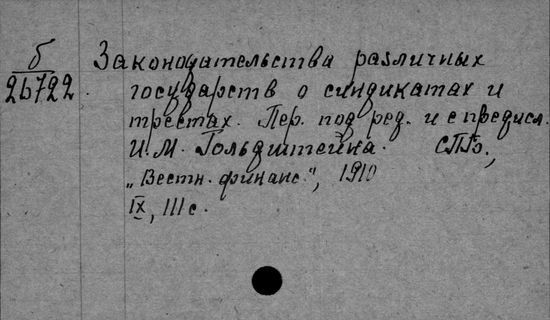 б
26722.
Законодательства различных
государств о синдикатах и
трестах. Пер. под ред. и с предисл.
И. М. Гольдштейна. СПб.,
„Вестн. финанс.", 1910
IX, 111 с.